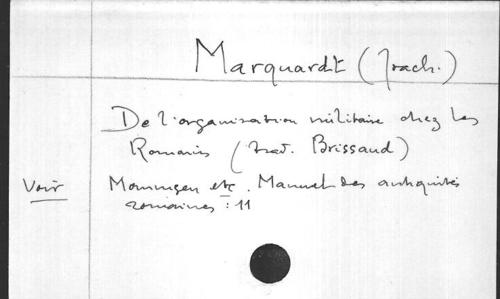 Marquardt (Joach.)
De l'organisation militaire chez les
Romains (trad. Brissaud)
Voir Mommsen etc. Manuel des antiquités
romaines : 11